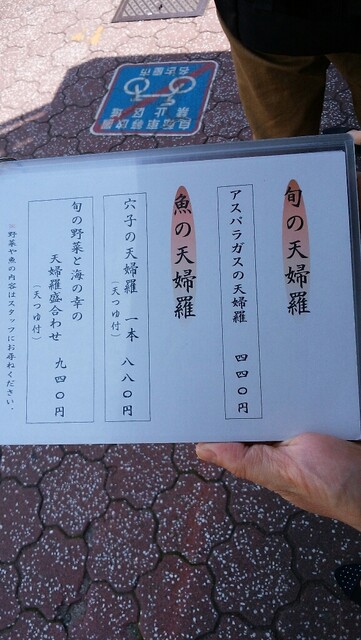 旬の天婦羅
アスパラガスの天婦羅 四四〇円
魚の天婦羅
穴子の天婦羅 一本 八八〇円
(天つゆ付)
旬の野菜と海の幸の
天婦羅盛合わせ 九四〇円
(天つゆ付)
※野菜や魚の内容はスタッフにお尋ねください。
自転車等放置
禁止区域
名古屋市